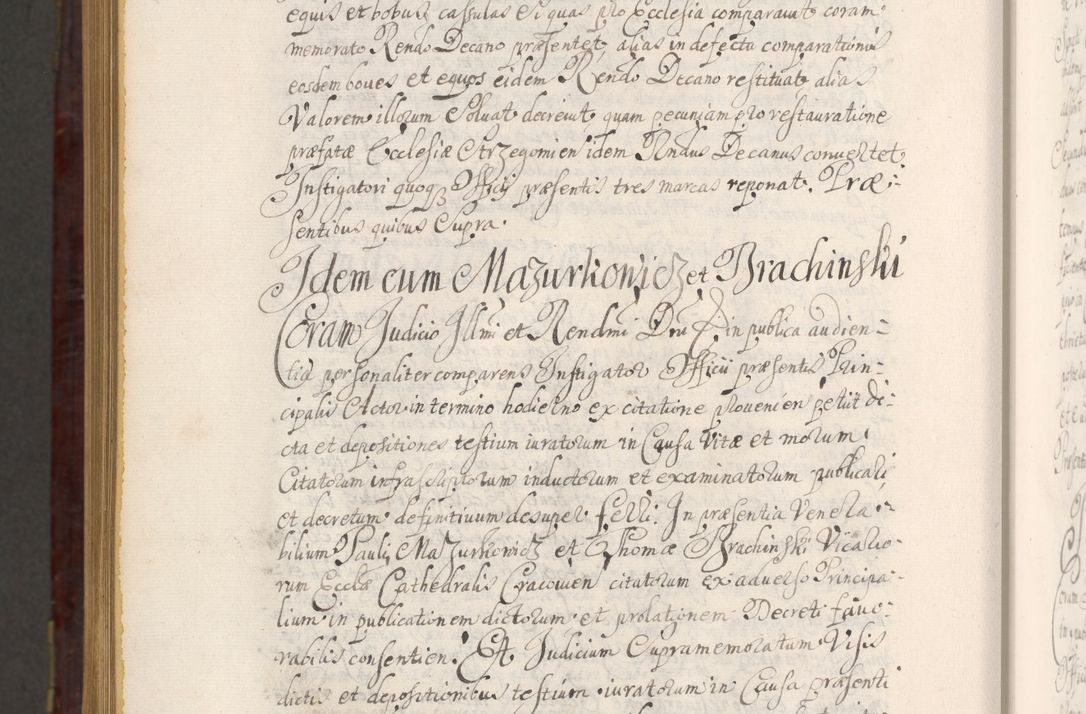 equis et bobus cassulas si quas pro Ecclesia comparavit coram
memorato Rendo Decano præsentet, alias in defectu comparationis
eosdem boves et equos eidem Rendo Decano restituat alias
Valorem illorum Soluat decrevit, quam pecuniam pro restauratione
præfatæ Ecclesiæ Strzegomien idem Rndus Decanus convertet.
Instigatori quoqȝ Officij præsentis tres marcas reponat. Præ-
sentibus quibus Supra.
Idem cum Mazurkowicz et Brachinski
Coram Judicio Illmi et Rendmi Dni in publica audien-
tia personaliter comparens Instigator Officii præsentis Prin-
cipalis Actor in termino hodierno ex citatione provenien petiit di-
cta et depositiones testium iuratorum in Causa Vitæ et morum
Citatorum infrascriptorum inductorum et examinatorum publicari,
et decretum definitivum desuper ferri. In præsentia Venera-
bilium Pauli Mazurkowicz et Thomæ Brachinski Vicario-
rum Ecclæ Cathedralis Cracovien citatorum ex adverso Principa-
lium in publicationem dictorum et prolationem Decreti favo-
rabilis consentien. Et Judicium Supramemoratum Visis
dictis et depositionibus testium iuratorum in Causa præsenti